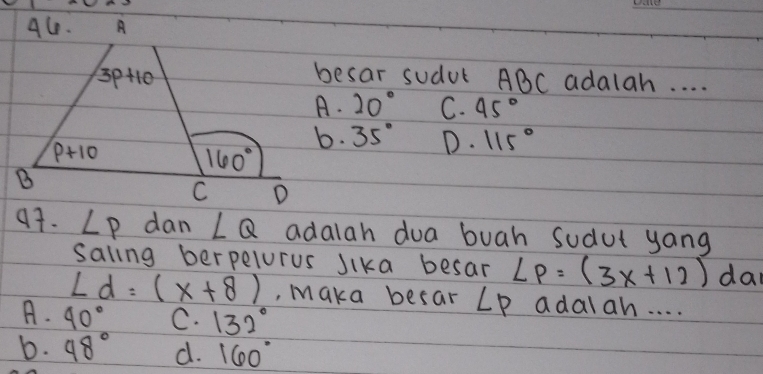 46. A
3p+10 besar sudut ABC adalah ....
A. 20° C. 45°
p+10 160° b. 35° D. 115°
B C D
47. ∠P dan ∠Q adalah dua buah sudut yang
saling berpelurus Jika besar ∠P = (3x+12) da
∠d = (x+8), maka besar ∠P adalah ....
A. 40° C. 132°
b. 48° d. 160°